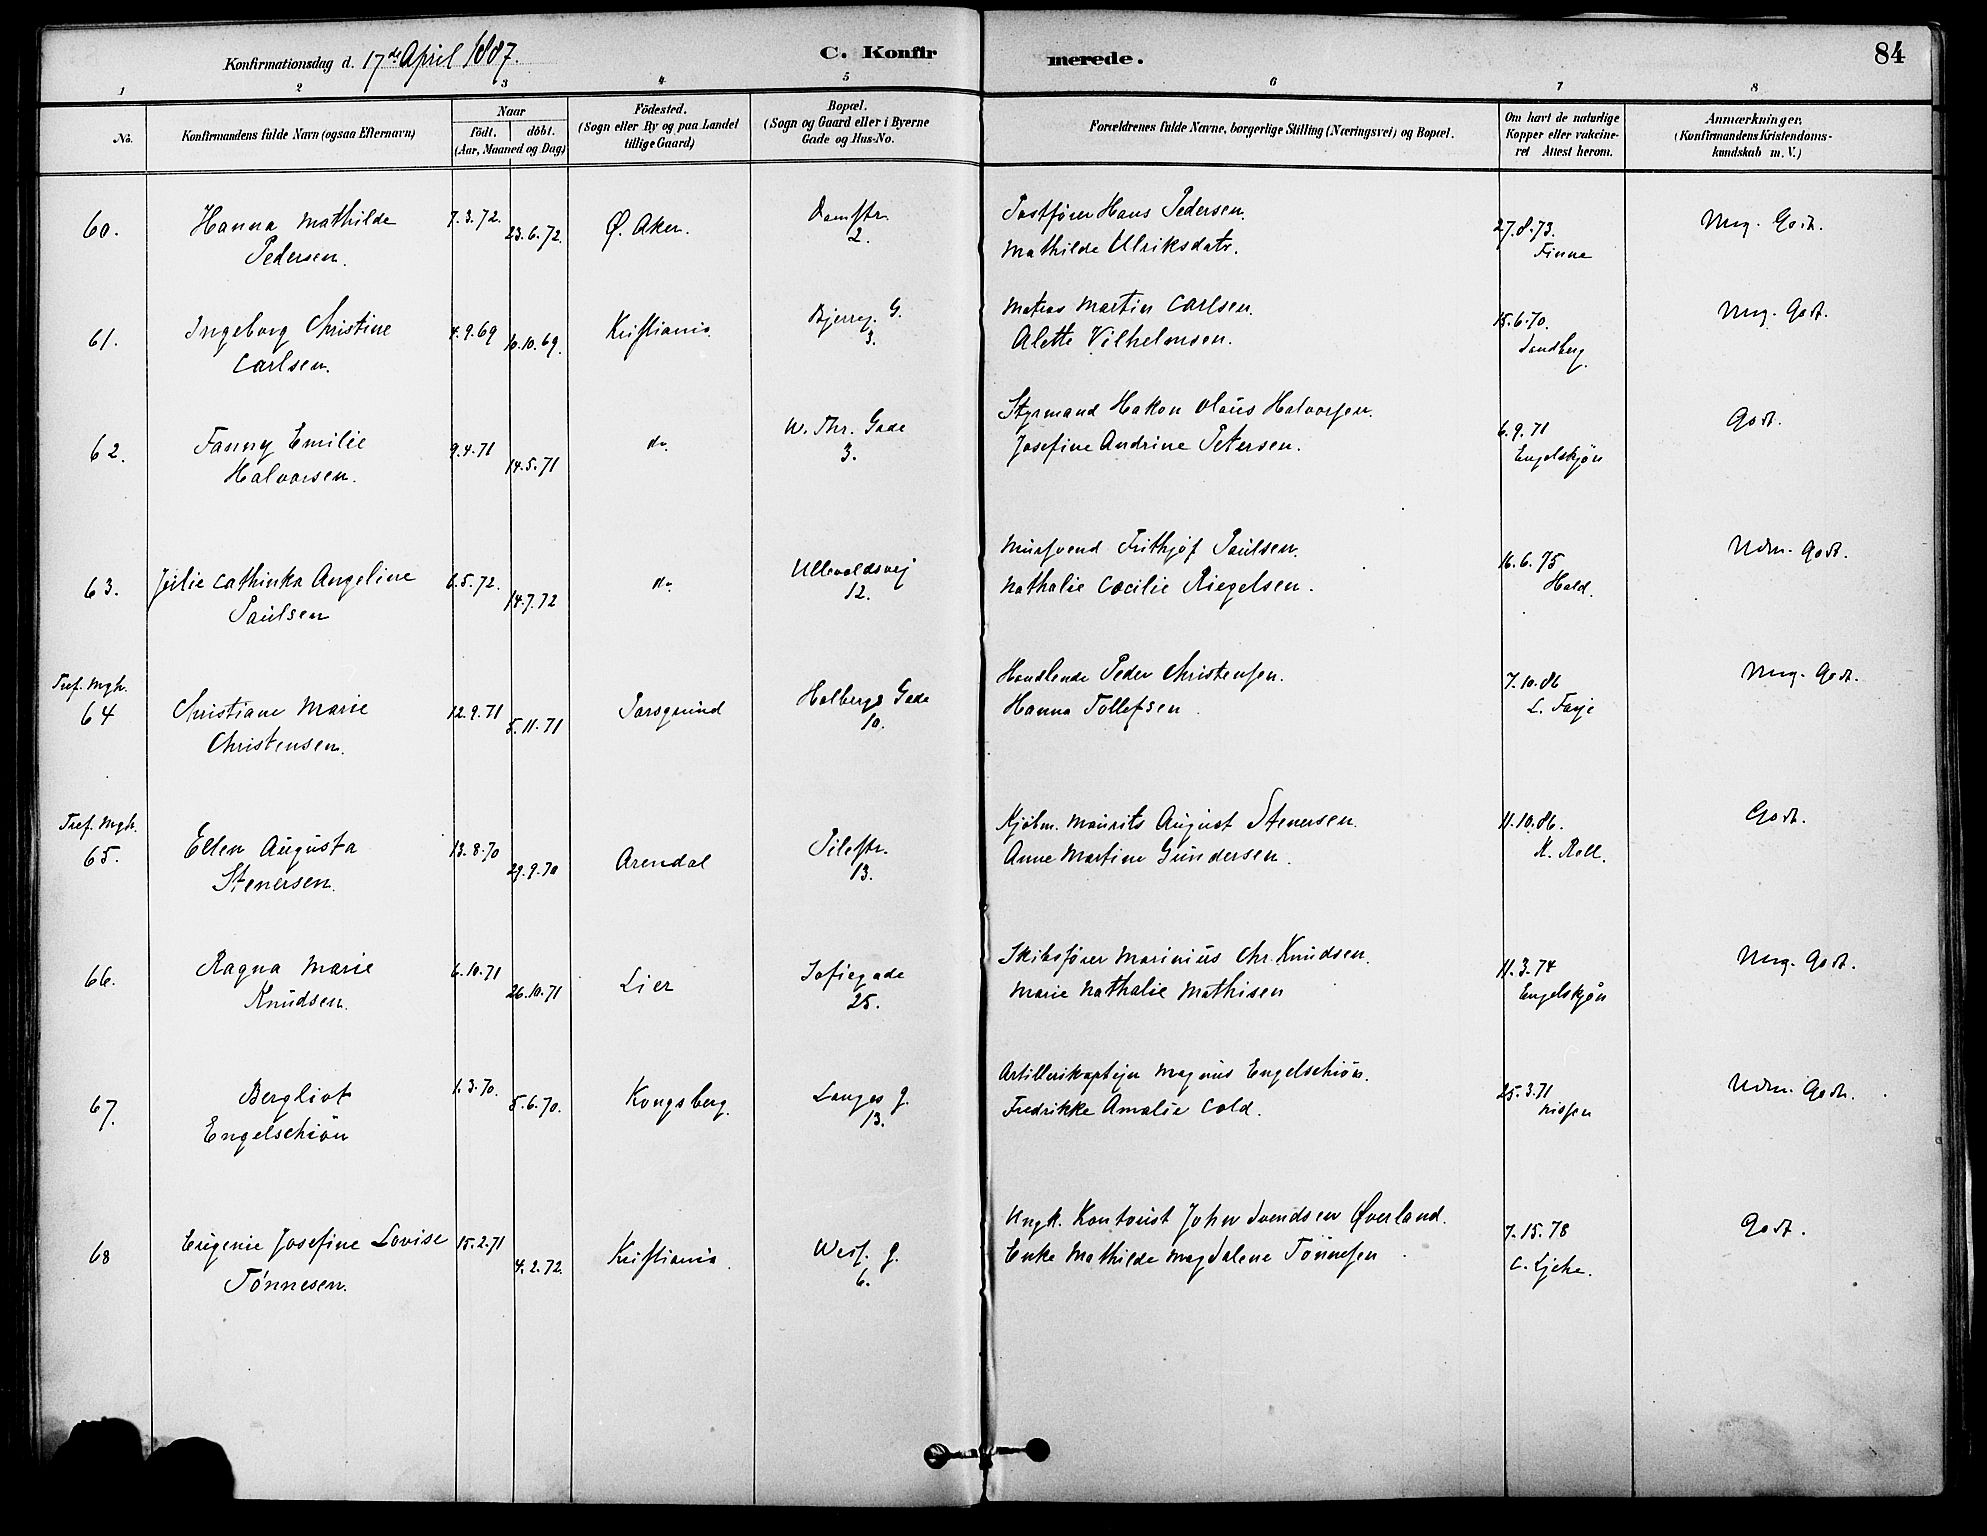 Konfirmationsdag d. 17de April 1887. C. Konfirmerede. 84
1 2 3 4 5 6 7 8
No.
Konfirmandens fulde Navn (ogsaa Efternavn)
Naar
födt. döbt.
(Aar, Maaned og Dag)
Födested.
(Sogn eller By og paa Landet
tillige Gaard)
Bopæl.
(Sogn og Gaard eller i Byerne
Gade og Hus-No.
Forældrenes fulde Navne, borgerlige Stilling (Næringsvei) og Bopæl.
Om havt de naturlige
Kopper eller vakcine-
ret Attest herom.
Anmærkninger.
(Konfirmandens Kristendoms-
kundskab m. V.)
60.
Hanna Mathilde
Pedersen.
7.3.72.
23.6.72.
Ø. Aker.
Damstr.
2.
Postfører Hans Pedersen.
Mathilde Ulriksdatr.
27.8.73.
Finne
Mrg. Godt.
61.
Ingeborg Christine
Carlsen.
4.9.69
10.10.69.
Kristiania.
Bjerreg. G.
3.
Matros Martin Carlsen.
Alette Vilhelmsen.
15.6.70.
Sandberg.
Mrg. Godt.
62.
Fanny Emilie
Halvorsen.
9.4.71
14.5.71
do.
W. Thr. Gade
3.
Styrmand Hakon Olaus Halvorsen.
Josefine Andrine Petersen.
6.9.71
Engelskjön
Godt.
63.
Julie Cathinka Angeline
Paulsen
6.5.72.
14.7.72
do.
Ullevoldsvej
12.
Mursvend Frithjof Paulsen.
Nathalie Cæcilie Riegelsen.
16.6.75
Hald.
Udm. Godt.
Tref. Mgh.
64
Christiane Marie
Christensen.
12.9.71
5.11.71
Porsgrund
Holbergs Gade
10.
Handlende Peder Christensen.
Hanna Tollefsen
7.10.86
L. Faye
Mrg. Godt.
Tref. Mgh.
65.
Ellen Augusta
Stenersen.
13.8.70
29.9.70
Arendal
Pilestr.
13.
Kjöbm. Maurits August Stenersen.
Anne Martine Gundersen.
11.10.86.
K. Roll.
Godt.
66.
Ragna Marie
Knudsen.
6.10.71
26.10.71
Lier
Sofiegade
25.
Skibsfører Marinius Chr. Knudsen.
Marie Nathalie Mathisen
11.3.74
Engelskjøn
Mrg. Godt.
67.
Bergliot
Engelschiön
1.3.70.
5.6.70.
Kongsberg.
Langes g.
13.
Artillerikaptejn Magnus Engelschiön.
Fredrikke Amalie Cold.
25.3.71
Nissen
Udm. Godt.
68
Eugenie Josefine Lovise
Tönnesen.
15.2.71
4.2.72.
Kristiania.
Wess. g.
6.
Ungk. Kontorist John Svendsen Øverland.
Enke Mathilde Magdalene Tönnesen.
7.15.78
Godt.